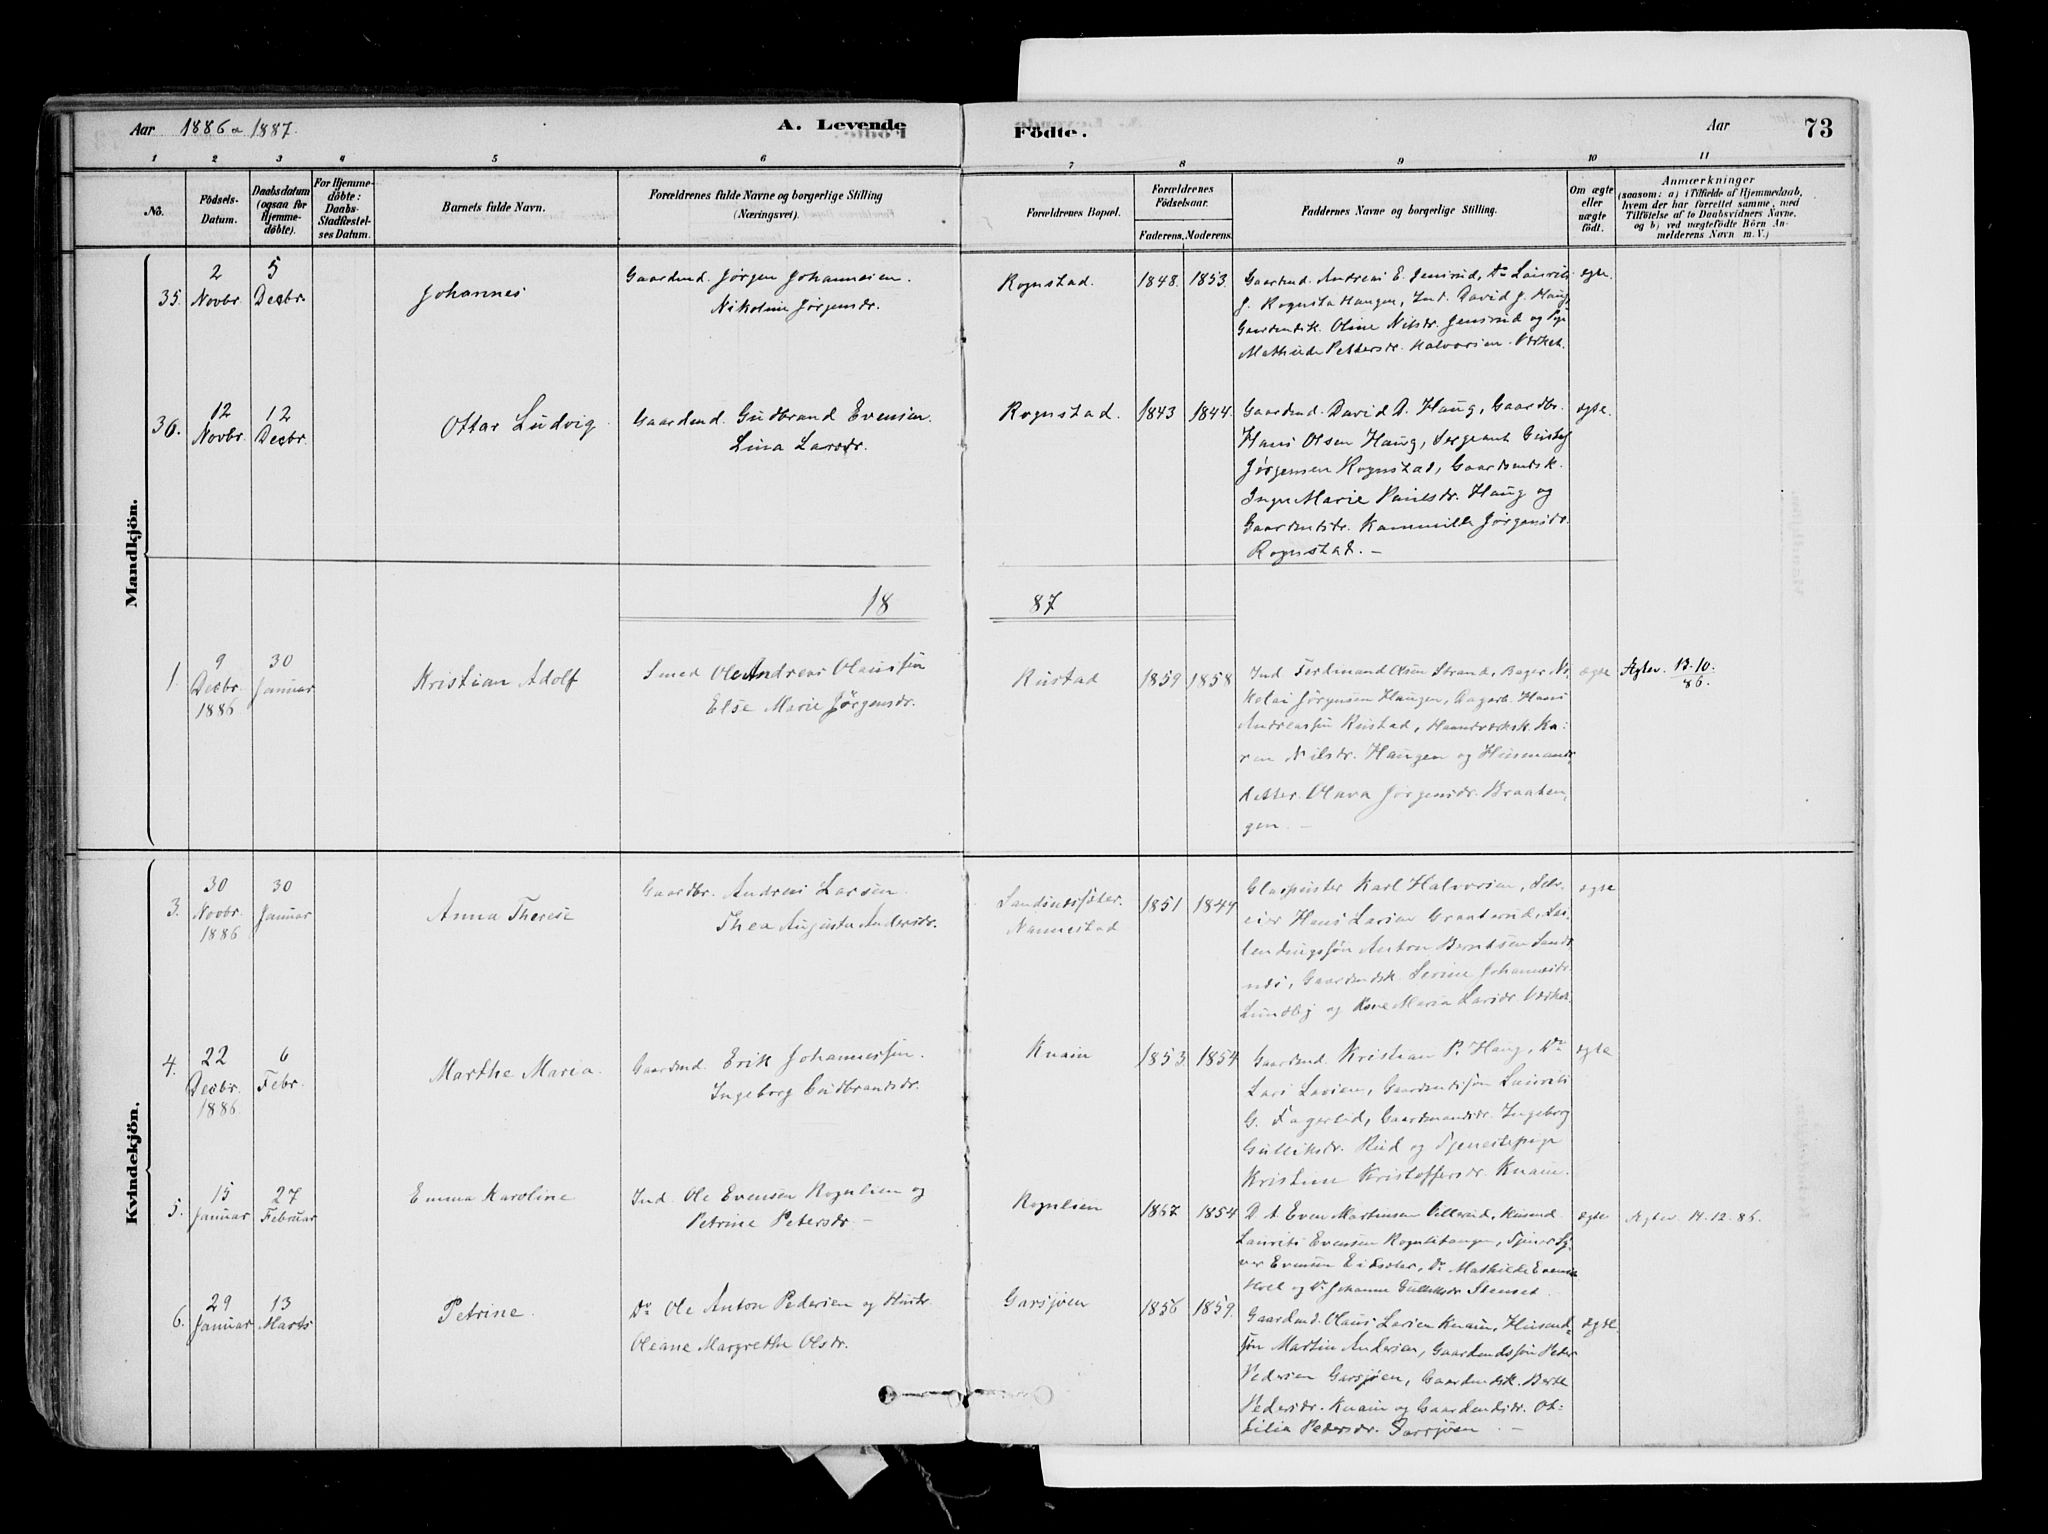 Aar 1886 & 1887.
A. Levende
Födte.
Aar
73
1 2 3 4 5 6 7 8 9 10 11
No.
Födsels-
Datum.
Daabsdatum
(ogsaa for
Hjemme-
döbte).
For Hjemme-
döbte:
Daabs-
Stadfæstel-
ses Datum.
Barnets fulde Navn.
Forældrenes fulde Navne og borgerlige Stilling
(Næringsvei).
Forældrenes Bopæl.
Forældrenes
Födselsaar.
Faderens. Moderens.
Faddernes Navne og borgerlige Stilling.
Om ægte
eller
uægte
födt.
Anmærkninger
(saasom: a) i Tilfælde af Hjemmedaab,
hvem der har forrettet samme, med
Tilföielse af to Daabsvidners Navne,
og b) ved uægtefödte Börn An-
melderens Navn m. V.)
Mandkjön.
35.
2
Novbr.
5
Decbr.
Johannes
Gaardmd. Jørgen Johannesen.
Nikoline Jørgensdr.
Rognstad.
1848. 1853.
Gaardmd. Andreas E. Jensrud, Do Laurits
J. Rognstahaugen, Ind. David J. Haug,
Gaardmdsk. Oline Nilsdr. Jensrud og Pige
Mathilde Pettersdr. Halvorsen Værket.
ægte.
36.
12
Novbr.
12
Decbr.
Ottar Ludvig
Gaardmd. Gudbrand Evensen.
Lina Larsdr.
Rognstad.
1843 1844.
Gaardmd. David D. Haug, Gaardbr.
Hans Olsen Haug, Sergeant Gustav
Jørgensen Rognstad, Gaardmdsk.
Inger Marie Paulsdr. Haug og
Gaardmdsdr. Kammilla Jørgensdr.
Rognstad. –
ægte.
18 87
1.
9
Decbr.
1886
30
Januar
Kristian Adolf
Smed Ole Andreas Olaussen
Else Marie Jørgensdr.
Rustad
1859 1858
Ind. Ferdinand Olsen Strand, Bager Ni-
kolai Jørgensen Haugen, Hans
Andreassen Rustad, Haandværksk. Ka-
ren Nilsdr. Haugen og Husmands
datter Olava Jørgensdr. Braaten,
gen. –
ægte
Ægtev. 13.10.
86.
Kvindekjön.
3.
30
Novbr.
1886
30
Januar
Anna Therese
Gaardbr. Andreas Larsen.
Thea Augusta Andersdr.
Sandsnessæter.
Nannestad
1851 1844
Glasmester Karl Halvorsen, Selv-
eier Hans Larsen Graaterud, Lei-
lendingssøn Anton Berntsen Sand-
nes, Gaardmdsk. Severine Johannesdr.
Lundby og Maria Larsdr. Værket.
ægte
4.
22
Decbr.
1886.
6
Febr.
Marthe Maria.
Gaardmd. Erik Johannessen.
Ingeborg Gudbrandsdr.
Knain
1853 1854
Gaardmd. Kristian P. Haug, Do
Lars Larsen, Gaardmdssøn Laurits
G. Fagerlid, Gaardmandsdr. Ingeborg
Gulliksdr. Rud og Tjenestepige
Kristine Kristoffersdr. Knain.
ægte
5.
15
Januar
27
Februar
Emma Karoline
Ind. Ole Evensen Rognlien og
Petrine Petersdr –
Rognlien
1867 1854
D. A. Even Martinsen Villerud, Husmd.
Laurits Evensen Rognlihaugen, Tjener Sy-
ver Evensen Eidsæter, Do Mathilde Evensen
Hoel og Do Johanne Gulliksdr Stenset.
ægte
Ægtev. 14.12.86.
6.
29
Januar
13
Marts
Petrine.
Do Ole Anton Pedersen og Hustr.
Oleane Margrethe Olsdr.
Garsjøen
1856 1859.
Gaardmd. Olaus Larsen Knain, Husmd-
søn Martin Andersen, Gaardmdssøn Peder
Pedersen Garsjøen, Gaardmdsk. Berte
Pedersdr. Knain og Gaardmdsdr. Ot-
tilia Pedersdr. Garsjøen. –
ægte.